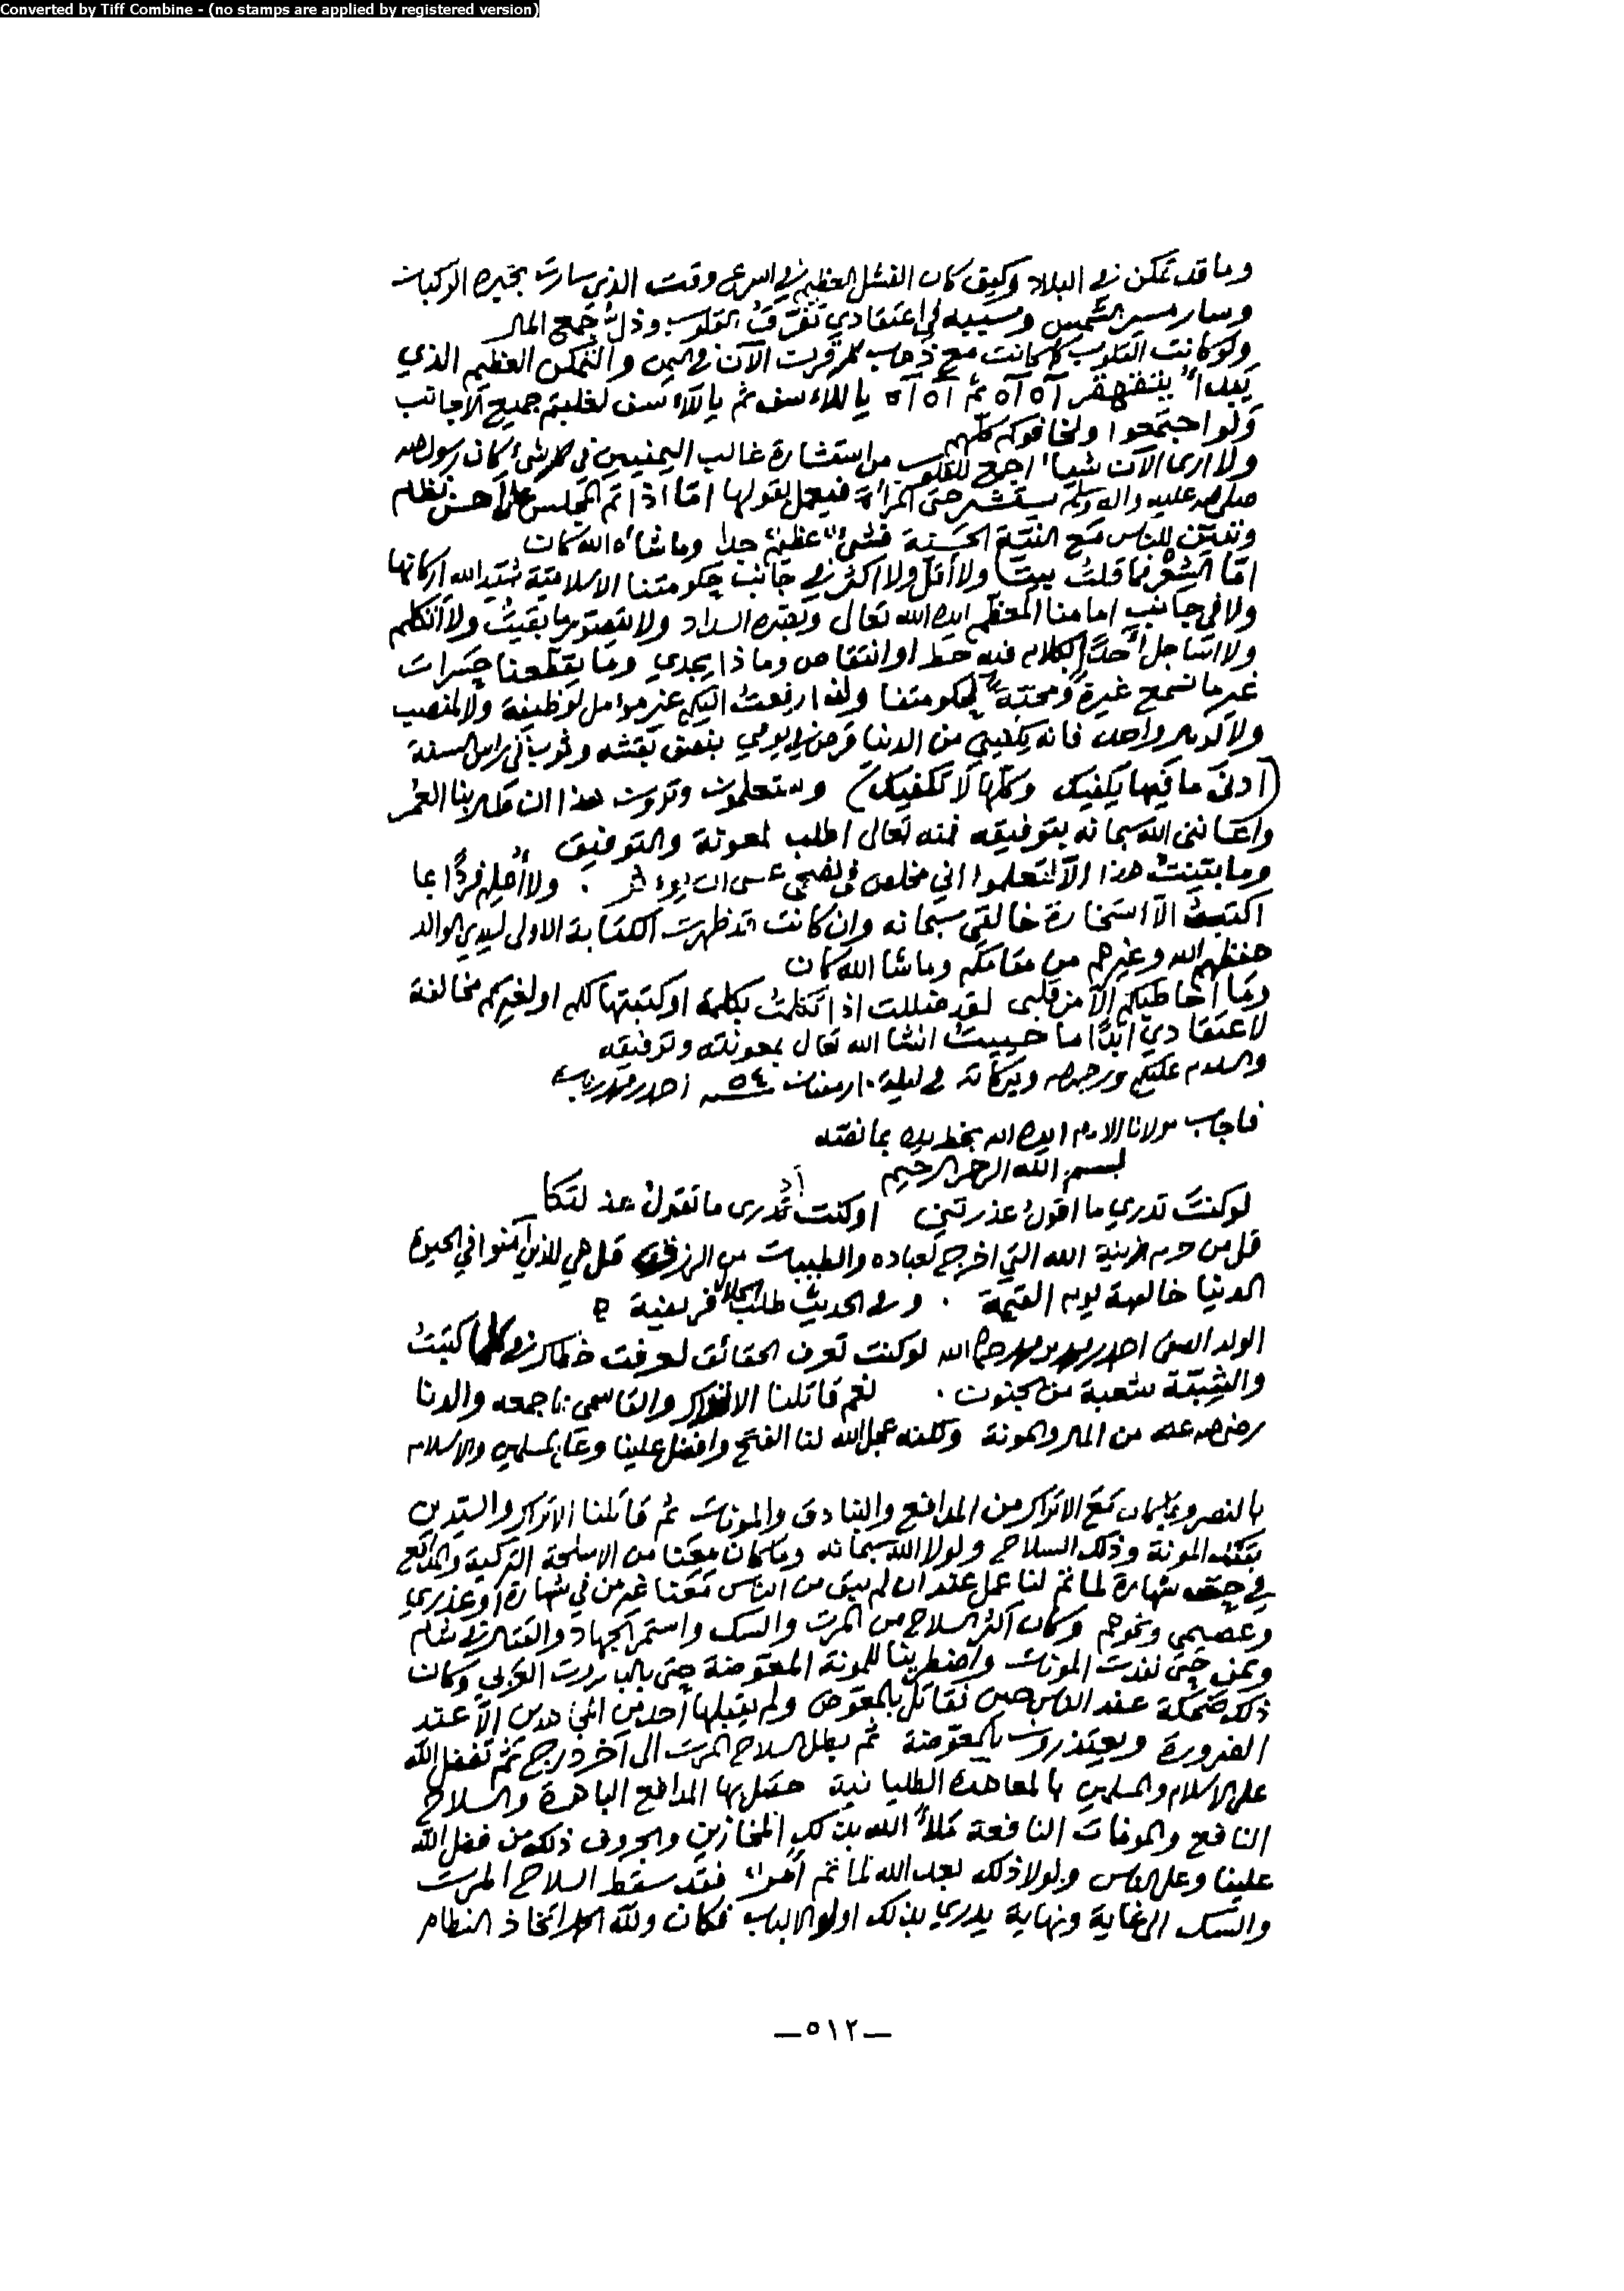 Converted by Tiff Combine - (no stamps are applied by registered version)
وما قد تمكن في البلاد وكيف كان الفشل العظيم في اسرع وقت الذي سارت بخبره الركبان
وسار مسير الشمس وسببه في اعتقادي تفرّق القلوب وذلك جمع المال
ولو كانت القلوب كما كانت مع ذهاب الآن في اليمن والتمكن العظيم الذي
آه آه ثم آه آه يا للاسف ثم يا للأسف لغلبتم جميع الأجانب
ولو اجتمعوا ولخافوكم كلهم
ولا ارى الآن شيئاً اجمع للقلوب من استشارة غالب اليمنيين في كل شيء كان رسول الله
صلى الله عليه واله وسلم يستشير حتى المرأة فيعمل بقولها امّا اذا تم المجلس على أحسن نظام
للناس مع النيّة الحسنة فشيءٌ عظيمٌ جداً وما شاء الله كان
امّا الشعر فما قلتُ بيتاً ولا أقلّ ولا اكثر في جانب حكومتنا الاسلاميّة شيّد الله اركانها
ولا في جانب امامنا المعظم ايده الله تعالى السداد ولا ما بقيتُ ولا أتكلم
ولا أحداً بكلام فيه حط او انتقاص وماذا يجدي وما يقطعنا حسرات
غير ما نسمع غيرةً ومحبّةً لحكومتنا ولهذا رفعتُ اليكم غير مؤمل لوظيفة ولا لمنصب
ولا واحد فانه يكفيني من الدنيا قرص في يومي وثوب في راس السنة
(ادنى ما فيها يكفيك وكلّها لا تكفيك) وستعلمون وترون هذا ان طال بنا العمر
واعانني الله سبحانه بتوفيقه فمنه تعالى اطلب المعونة والتوفيق
وما بيّنتُ هذا الّا لتعلموا اني مخلص في نصحي عسى ان يؤثر . ولا أُعلِم فرداً بما
اكتبتُ الّا استخارة خالقي سبحانه وان كانت قد ظهرت الكتابة الاولى لسيدي الوالد
حفظهم الله وغيرهم من مقامكم وما شا الله كان
وما أخاطبكم الّا من قلبي لقد ضللت اذا تكلمتُ بكلمة او كتبتها لكم او لغيركم مخالفة
لاعتقادي أبداً ما حييتُ انشا الله تعالى بمعونته وتوفيقه
والسلام عليكم ورحمة الله وبركاته في ليلة ١٠ رمضان سنة ٥٤ احمد
فاجاب مولانا الامام ايده الله بخط يده بما نصّه
بسم الله الرحمن الرحيم
لو كنتَ تدري ما اقولُ عذرتني او كنت تدرى ما تقول عذلتكا
قل من حرم زينة الله التي اخرج لعباده والطيبات من الرزق قل هي للذين آمنوا في الحيوة
الدنيا خالصة يوم القيمة . وفي الحديث طلب الحلال فريضة
الولد الصفي احمد الله لو كنت تعرف الحقائق لعرفت خطاك في كلما كتبتُ
والشيبة شعبة من الجنون . نعم قاتلنا الاتراك والقاسمي بما جمعه والدنا
رضي الله عنه من المال والمونة ولكنه عجل الله لنا الفتح وافضل علينا وعلى المسلمين والاسلام
بالنصر وبما كان مع الاتراك من المدافع والبنادق والمونات ثم قاتلنا الاتراك
بتلك المونة وذلك السلاح ولولا الله سبحانه وما كان معنا من الاسلحة التركية والمدافع
في شهارة لما تم لنا عمل عند ان لم يبق من الناس معنا غير من في شهارة أو عذري
وعصيمي ونحوهم وكان اكثر السلاح من المرت والسك واستمر الجهاد والقتال في شام
ويمن حتى نفدت المونات واضطرينا للمونة المعوّضة حتى بالبارود العربي وكان
ذلك ضحكة عند الناس حين نقاتل بالمعوّض ولم يقبلها أحد من المجاهدين الّا عند
الضرورة ويعتذرون بالمعوّضة ثم بطل السلاح المرت الى آخر درج ثم تفضل الله
على الاسلام والمسلمين بالمعاهدة الطليانية حصّل بها المدافع الباهرة والسلاح
النافع والمونات النافعة ملأ الله بذلك المخازين والجروف ذلك من فضل الله
علينا وعلى الناس ولولا ذلك بعد الله لما تم أمرٌ فقد سقط السلاح المرت
والسك الى غاية ونهاية يدري بذلك اولو الالباب فكان ولله الحمد اتخاذ النظام
—٥١٢—